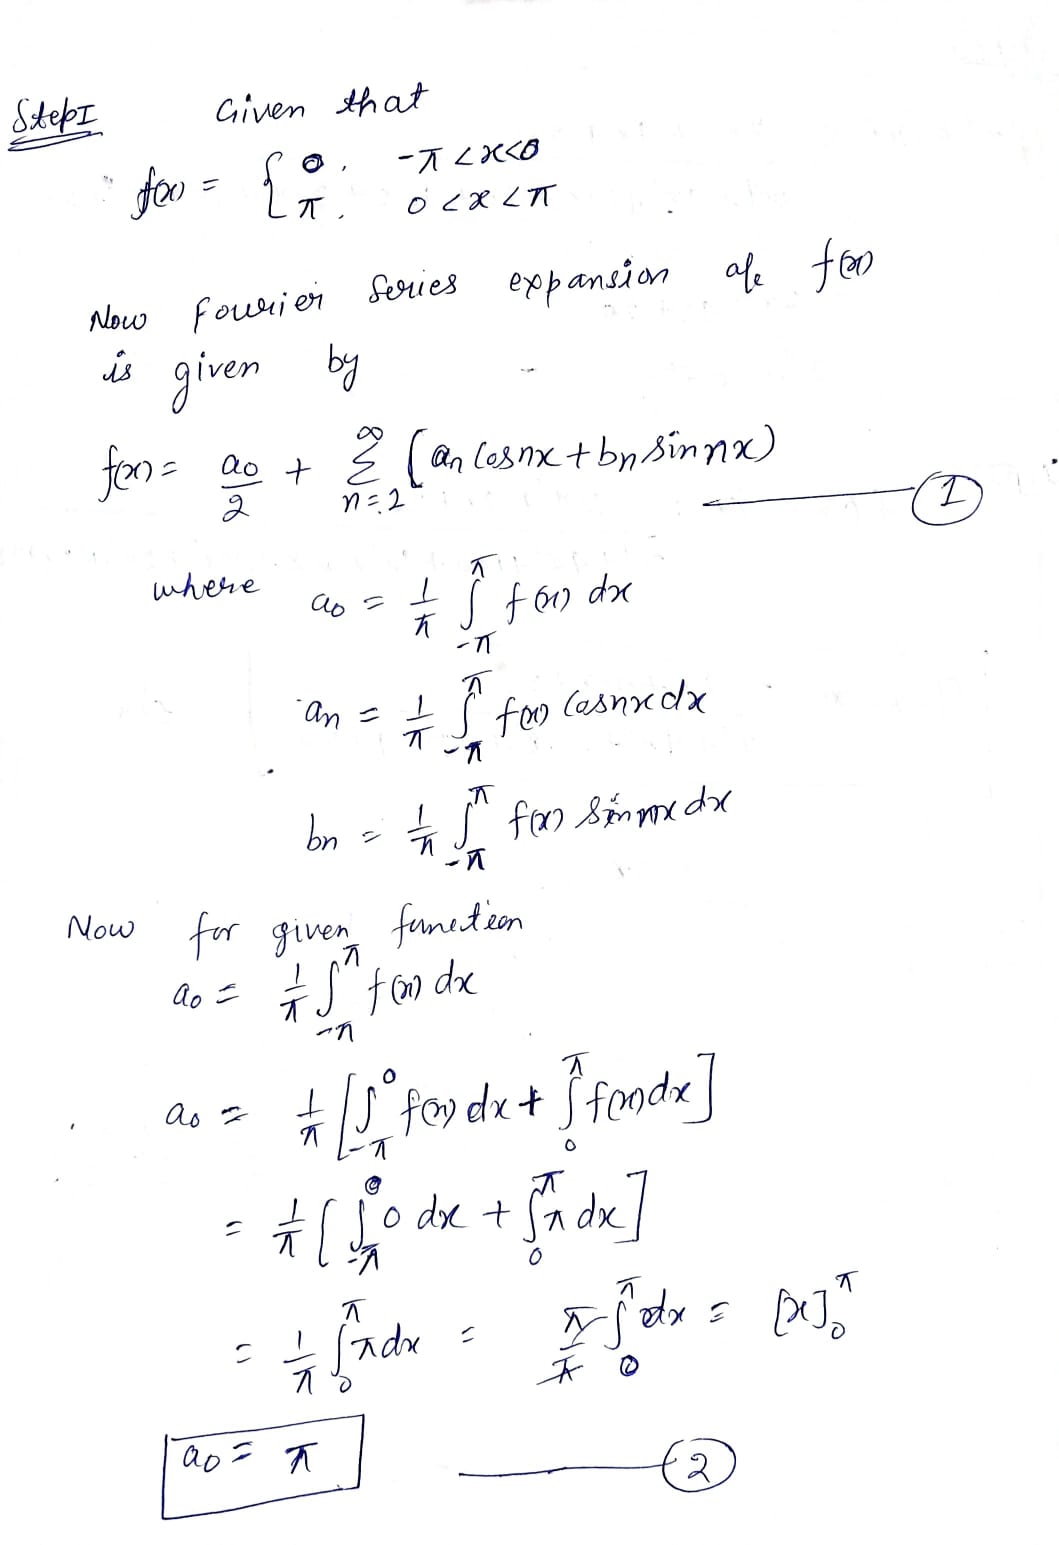 Step I Given that
f(x) = { 0, -π < x < 0
π, 0 < x < π
Now Fourier Series expansion of f(x)
is given by
f(x) = a0/2 + Σ_{n=2}^{∞} (an Cosnx + bn Sinnx)
1
where a0 = 1/π ∫_{-π}^{π} f(x) dx
an = 1/π ∫_{-π}^{π} f(x) Cosnx dx
bn = 1/π ∫_{-π}^{π} f(x) Sinnx dx
Now for given function
a0 = 1/π ∫_{-π}^{π} f(x) dx
a0 = 1/π [∫_{-π}^{0} f(x) dx + ∫_{0}^{π} f(x) dx]
= 1/π [∫_{-π}^{0} 0 dx + ∫_{0}^{π} π dx]
= 1/π ∫_{0}^{π} π dx = π/π ∫_{0}^{π} dx = [x]_{0}^{π}
a0 = π 2